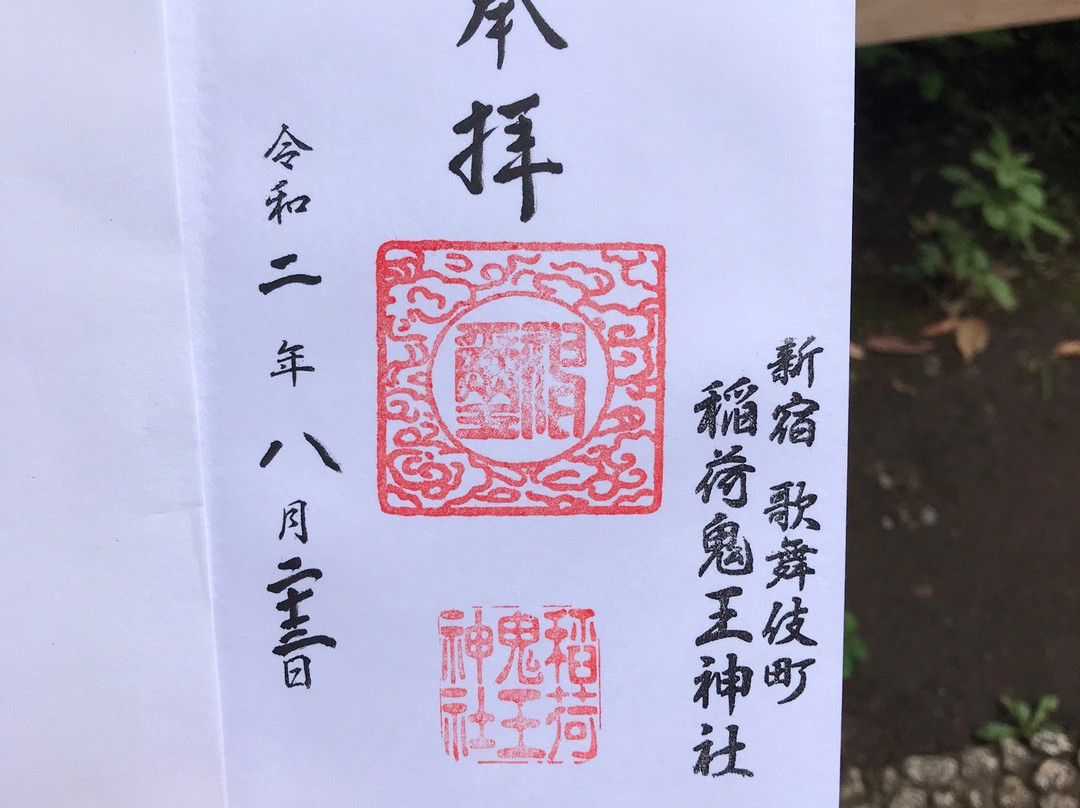 新宿 歌舞伎町
稲荷鬼王神社
奉拝
稲荷
鬼王
神社
令和二年八月二十三日